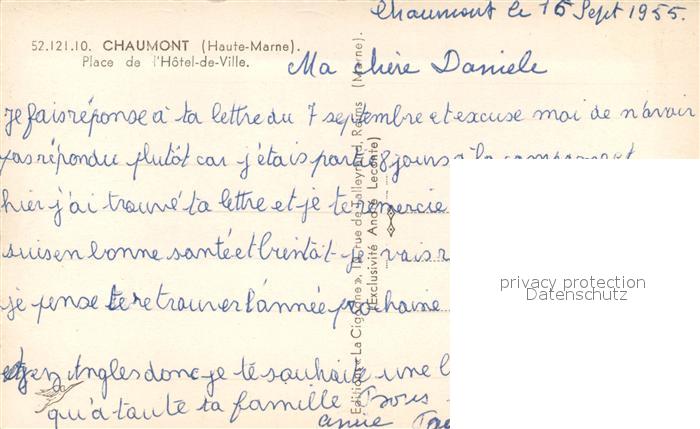 Chaumont le 16 Sept 1955.
52.121.10. CHAUMONT (Haute-Marne).
Place de l'Hôtel-de-Ville.
Ma chère Daniele
Je fais réponse à ta lettre du 7 septembre et excuse moi de n'avoir
pas répondu plutôt car j'étais partie 8 jours à la
hier j'ai trouvé ta lettre et je te remercie
suis en bonne santé et bientôt je vais
je pense te retrouver l'année prochaine
Angles donc je te souhaite une
qu'à toute ta famille
amie
Editions « La Cigogne », rue de Talleyrand, Reims (Marne).
(Exclusivité André Leconte)
privacy protection
Datenschutz